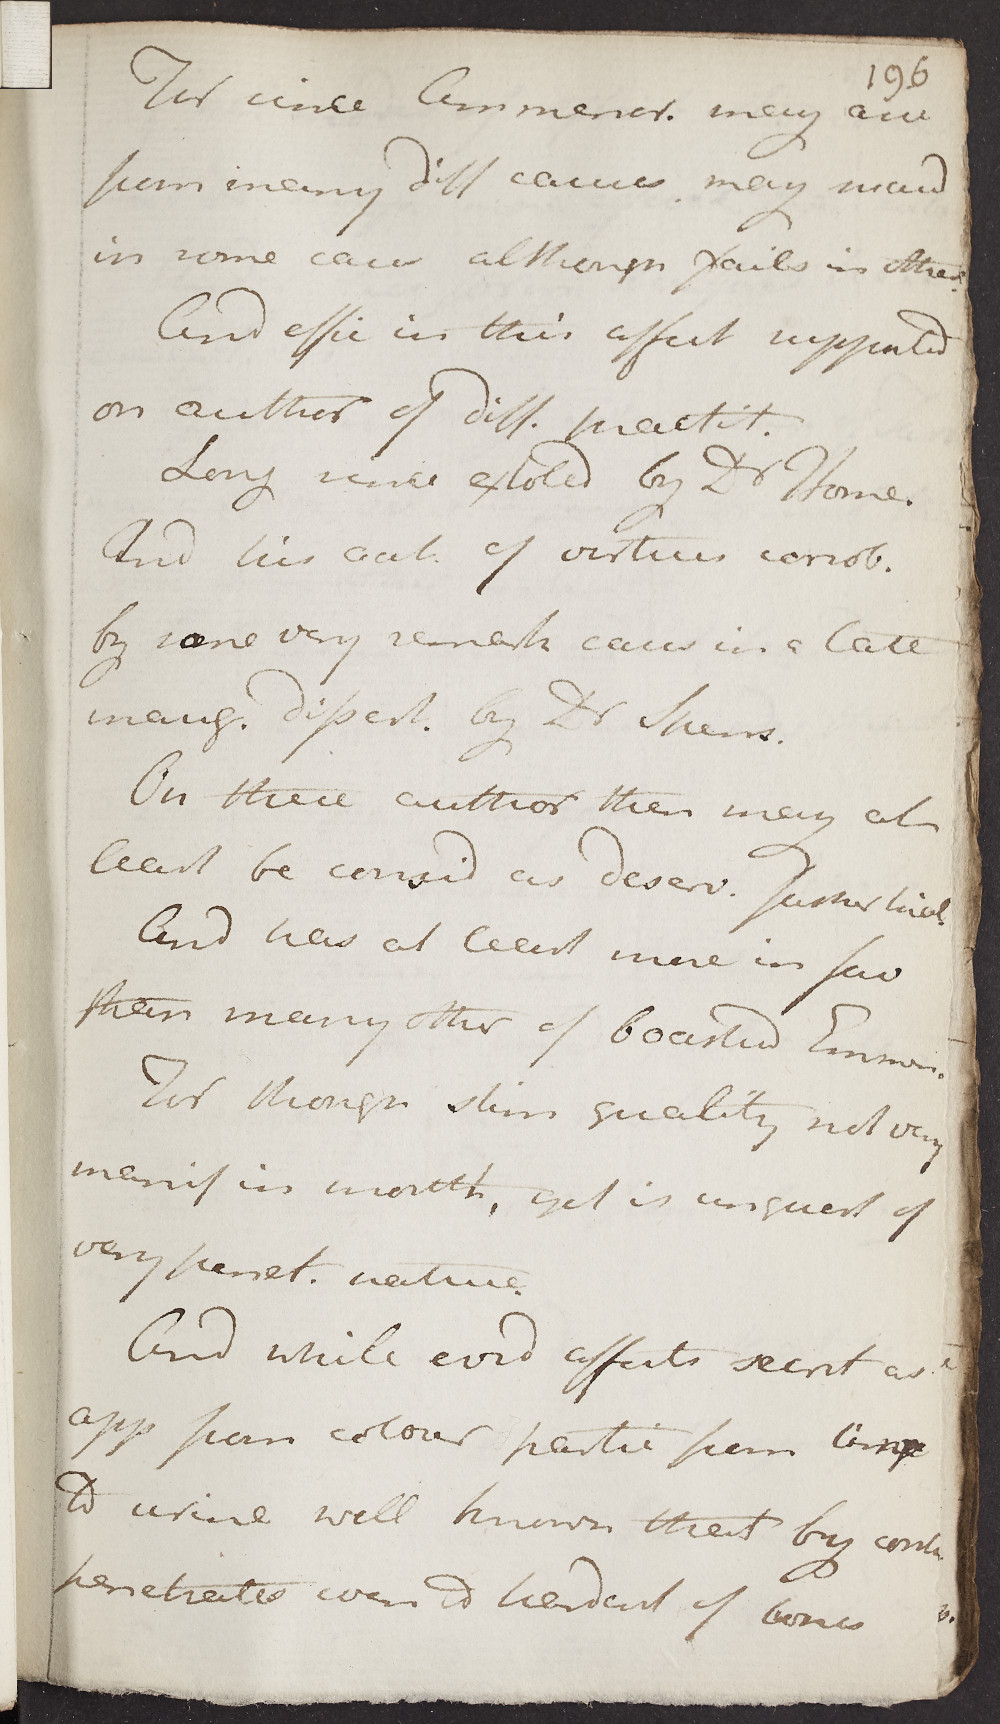 196
For since Ammenor. may arise
from many diff causes, may succd
in some cases although fails in others
And effic in this affect supported
on author of diff. practit.
Long since extoled by Dr Home.
And his act. of virtues corrob.
by some very remark cases in a late
inaug. dissert. by Dr Spens.
On these author then may at
least be consid as deserv. farther trial.
And has at least more in fav
than many other of boasted Emmen.
For though stim quality not very
manif in mouth, yet is unquest of
very penet. nature.
And while evid affects secret as
app from colour partic from
to urine well known that by
penetrates even to hardest of bones